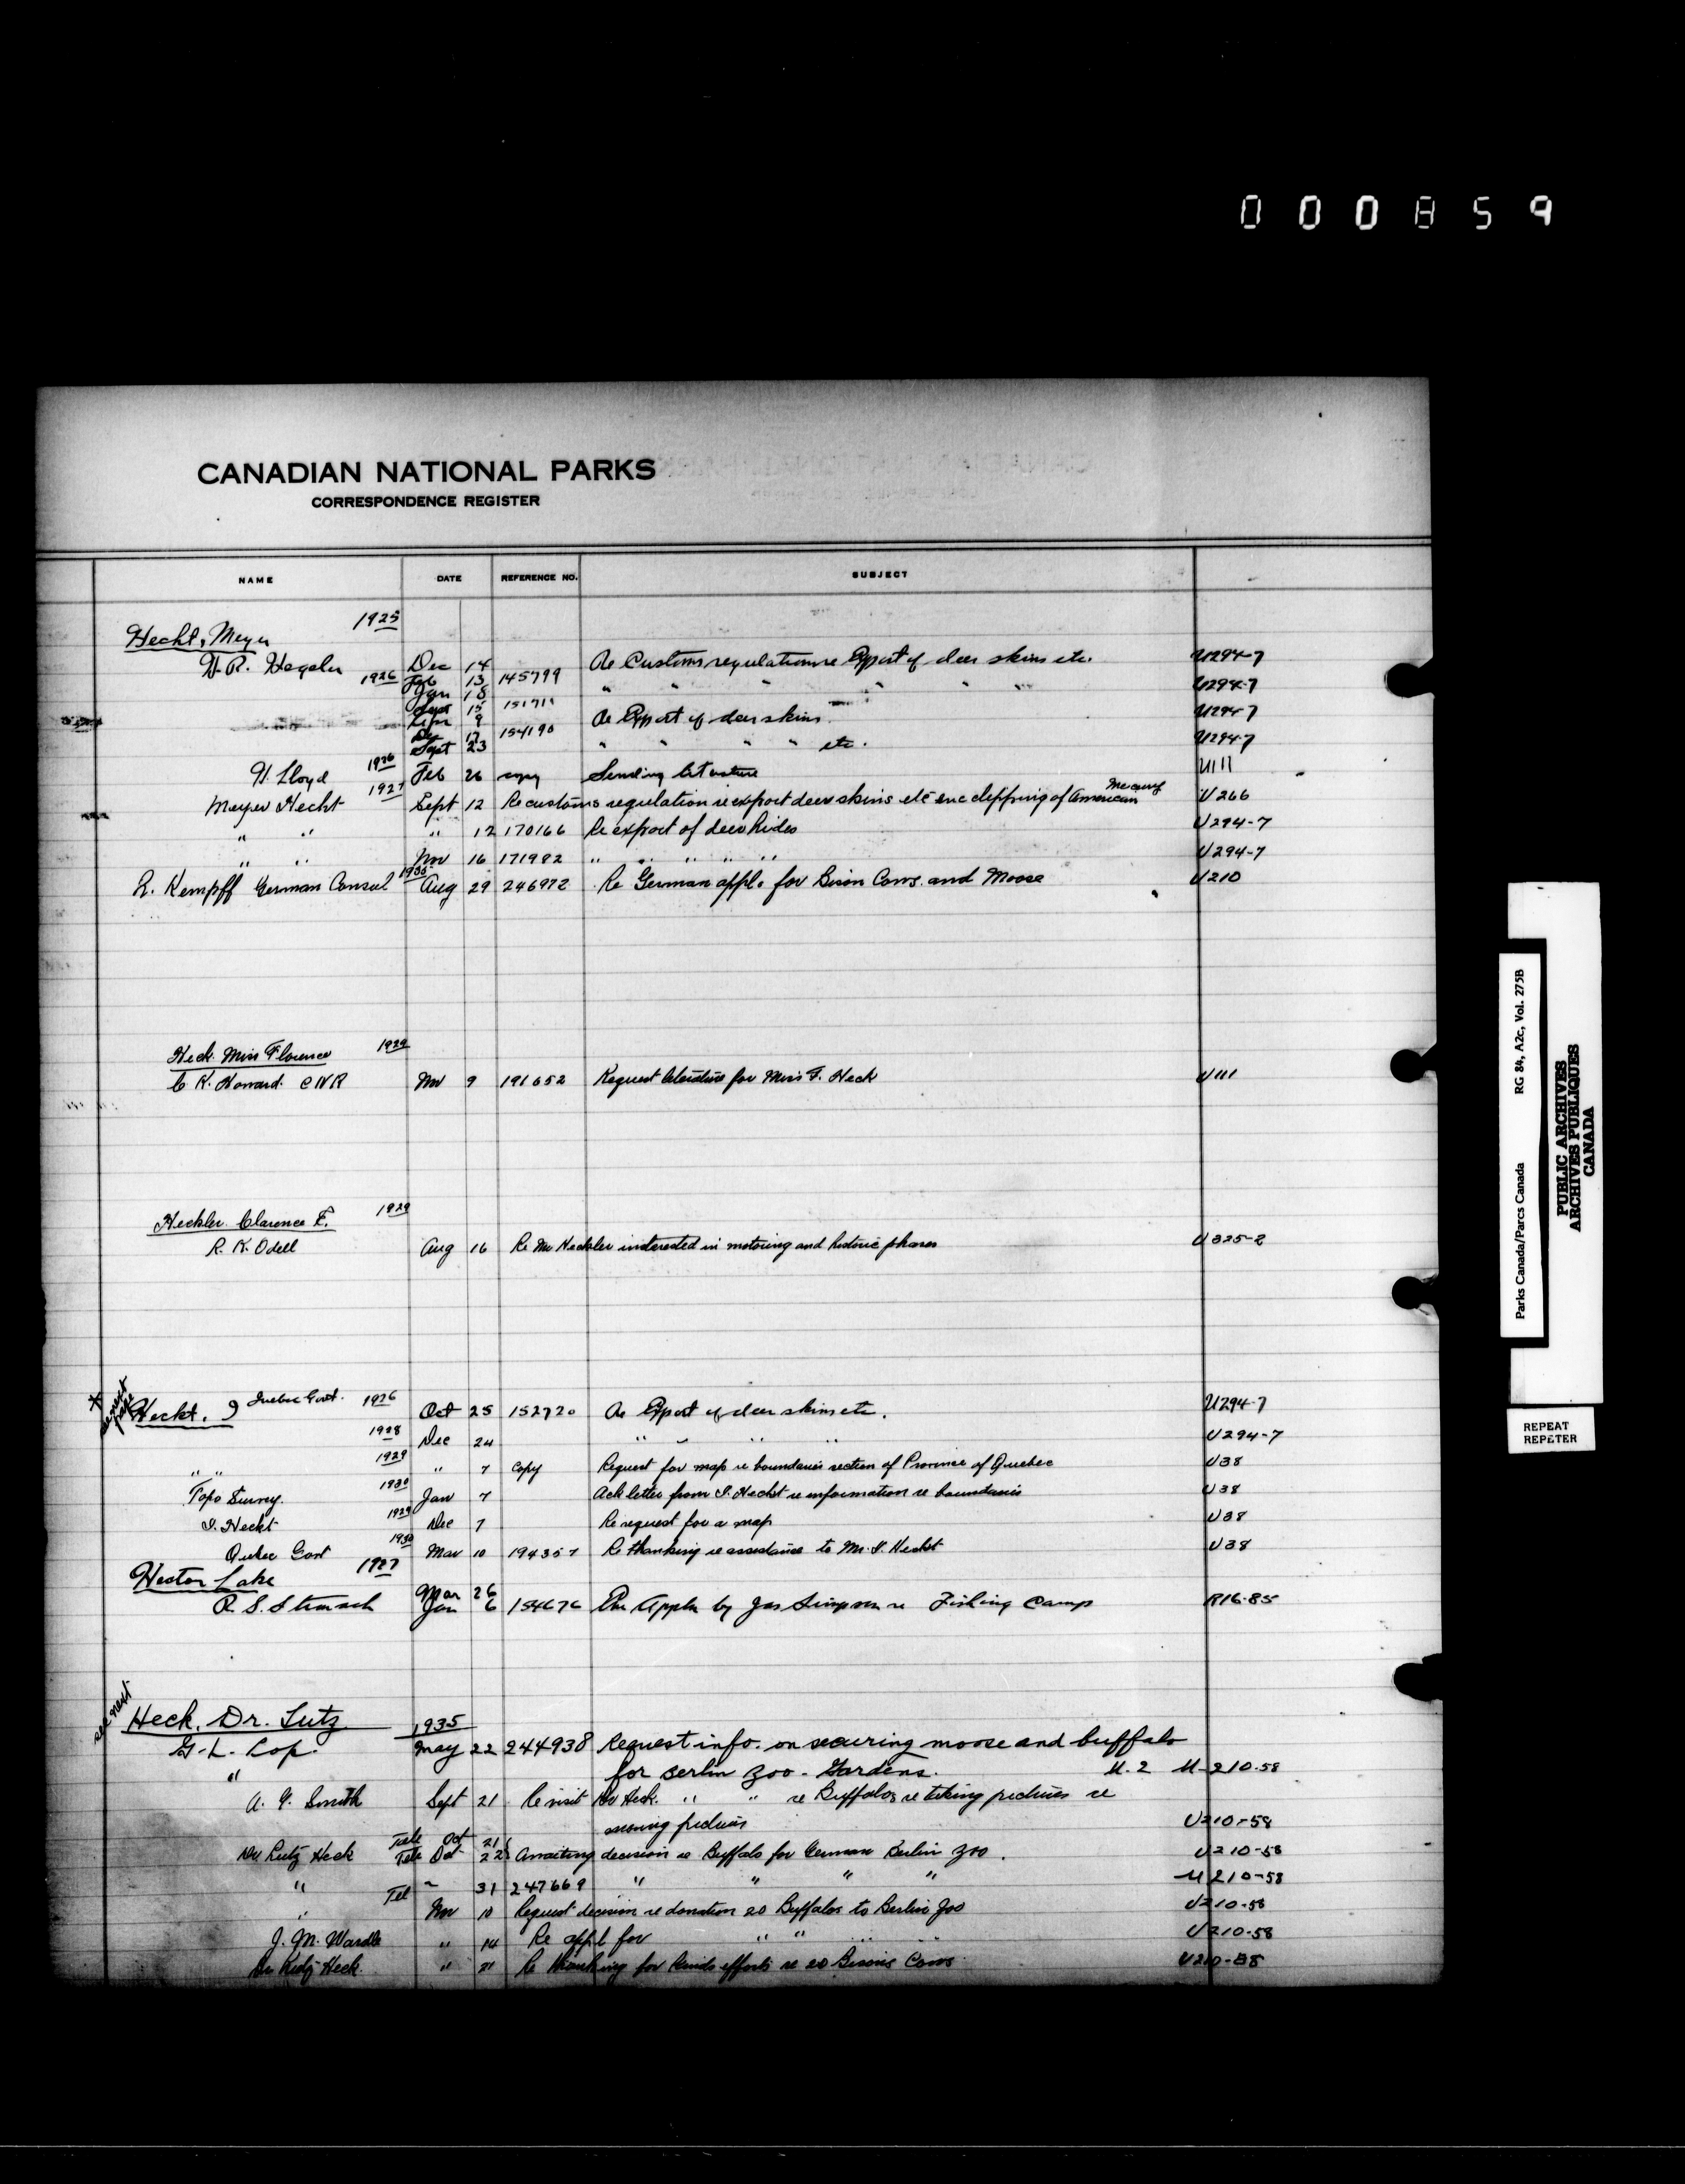 000859
CANADIAN NATIONAL PARKS
CORRESPONDENCE REGISTER
NAME DATE REFERENCE NO. SUBJECT
1925
Hecht, Meyer
Dec 14 Re Customs regulation re Export of deer skins etc. U294-7
1926 Feb 13 145799 " " " " " " U294-7
Jan 18
Sept 15 151711 U294-7
9 Re Export of deer skins
17 154190 U294-7
Sept 23 " " " " etc.
H. Lloyd 1926 Feb 26 copy Sending literature U111
Meyer Hecht 1927 Sept 12 Re customs regulation re export deer skins etc enc clipping of American U266
" " " 12 170166 Re export of deer hides U294-7
" " Nov 16 171982 " " " " " U294-7
L. Kempff German Consul 1935 Aug 29 246972 Re German appl. for Bison Cows and Moose U210
Heck Miss Florence 1929
C. K. Howard. CNR Nov 9 191652 Request literature for Miss F. Heck U111
Heckler Clarence E. 1929
R. K. Odell Aug 16 Re Mr Heckler interested in motoring and historic phases U325-2
Heckt. I Quebec Govt. 1926 Oct 25 152720 Re Export of deer skins etc. U294-7
1928 Dec 24 " " " " U294-7
" " 1929 " 7 Copy Request for map re boundaries section of Province of Quebec U38
Topo Survey. 1930 Jan 7 Ack letter from I. Hecht re information re boundaries U38
I. Hecht 1929 Dec 7 Re request for a map U38
Quebec Govt 1930 Mar 10 194357 Re thanking re assistance to Mr. I. Hecht U38
Hector Lake 1927
Mar 26
R. S. Stronach Jan 6 154676 Re Appln by Jas Simpson re Fishing Camp R16-85
see next
Heck, Dr. Lutz 1935
G. L. Cop. May 22 244938 Request info. on securing moose and buffalo
" for Berlin Zoo-Gardens. U.2 U-210-58
A. G. Smith Sept 21 Re visit Dr Heck. " " re Buffalos re taking pictures re
moving pictures U210-58
Tele Oct 21
Dr Lutz Heck Tele Oct 22 Awaiting decision re Buffalo for German Berlin Zoo. U210-58
" Tel " 31 247669 " " " " U210-58
" Nov 10 Request decision re donation 20 Buffalos to Berlin Zoo U210-58
J. M. Wardle " 14 Re appl for " " " " U210-58
Dr Lutz Heck. " 21 Re thanking for kind efforts re 20 Bisons Cows U210-58
Parks Canada/Parcs Canada RG 84, A2c, Vol. 275B
PUBLIC ARCHIVES
ARCHIVES PUBLIQUES
CANADA
REPEAT
REPETER